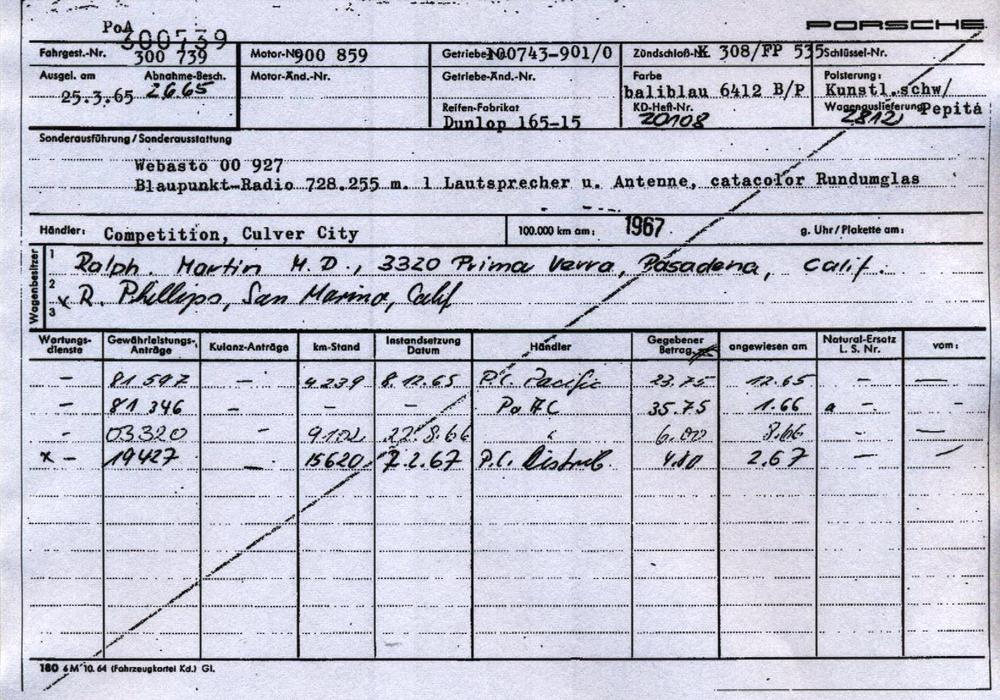 PoA PORSCHE
300539
Fahrgest.-Nr. 300 739 Motor-Nr. 900 859 Getriebe-Nr. 100743-901/0 Zündschloß-Nr. K 308/FP 535 Schlüssel-Nr.
Ausgel. am Abnahme-Besch. Motor-Änd.-Nr. Getriebe-Änd.-Nr. Farbe Polsterung:
25.3.65 2665 baliblau 6412 B/P Kunstl.schw/
Reifen-Fabrikat KD-Heft-Nr. Wagenauslieferung Pepita
Dunlop 165-15 20108 2812
Sonderausführung/Sonderausstattung
Webasto 00 927
Blaupunkt-Radio 728.255 m. 1 Lautsprecher u. Antenne, catacolor Rundumglas
Händler: Competition, Culver City 100.000 km am: 1967 g. Uhr/Plakette am:
Wagenbesitzer
1 Ralph. Martin M.D., 3320 Prima Verra, Pasadena, Calif.
2 x R. Phillips, San Marino, Calif
3
Wartungs-dienste Gewährleistungs-Anträge Kulanz-Anträge km-Stand Instandsetzung Datum Händler Gegebener Betrag angewiesen am Natural-Ersatz L. S. Nr. vom:
– 81 597 – 4239 8.12.65 P.C. Pacific 23.75 12.65 – –
– 81 346 – – – Po AC 35.75 1.66 – –
– 03320 – 9102 22.8.66 " 6.00 8.66 – –
x – 19427 – 15620 7.2.67 P.C. Distrib. 4.80 2.67 – –
180 6 M 10. 64 (Fahrzeugkartei Kd.) Gl.